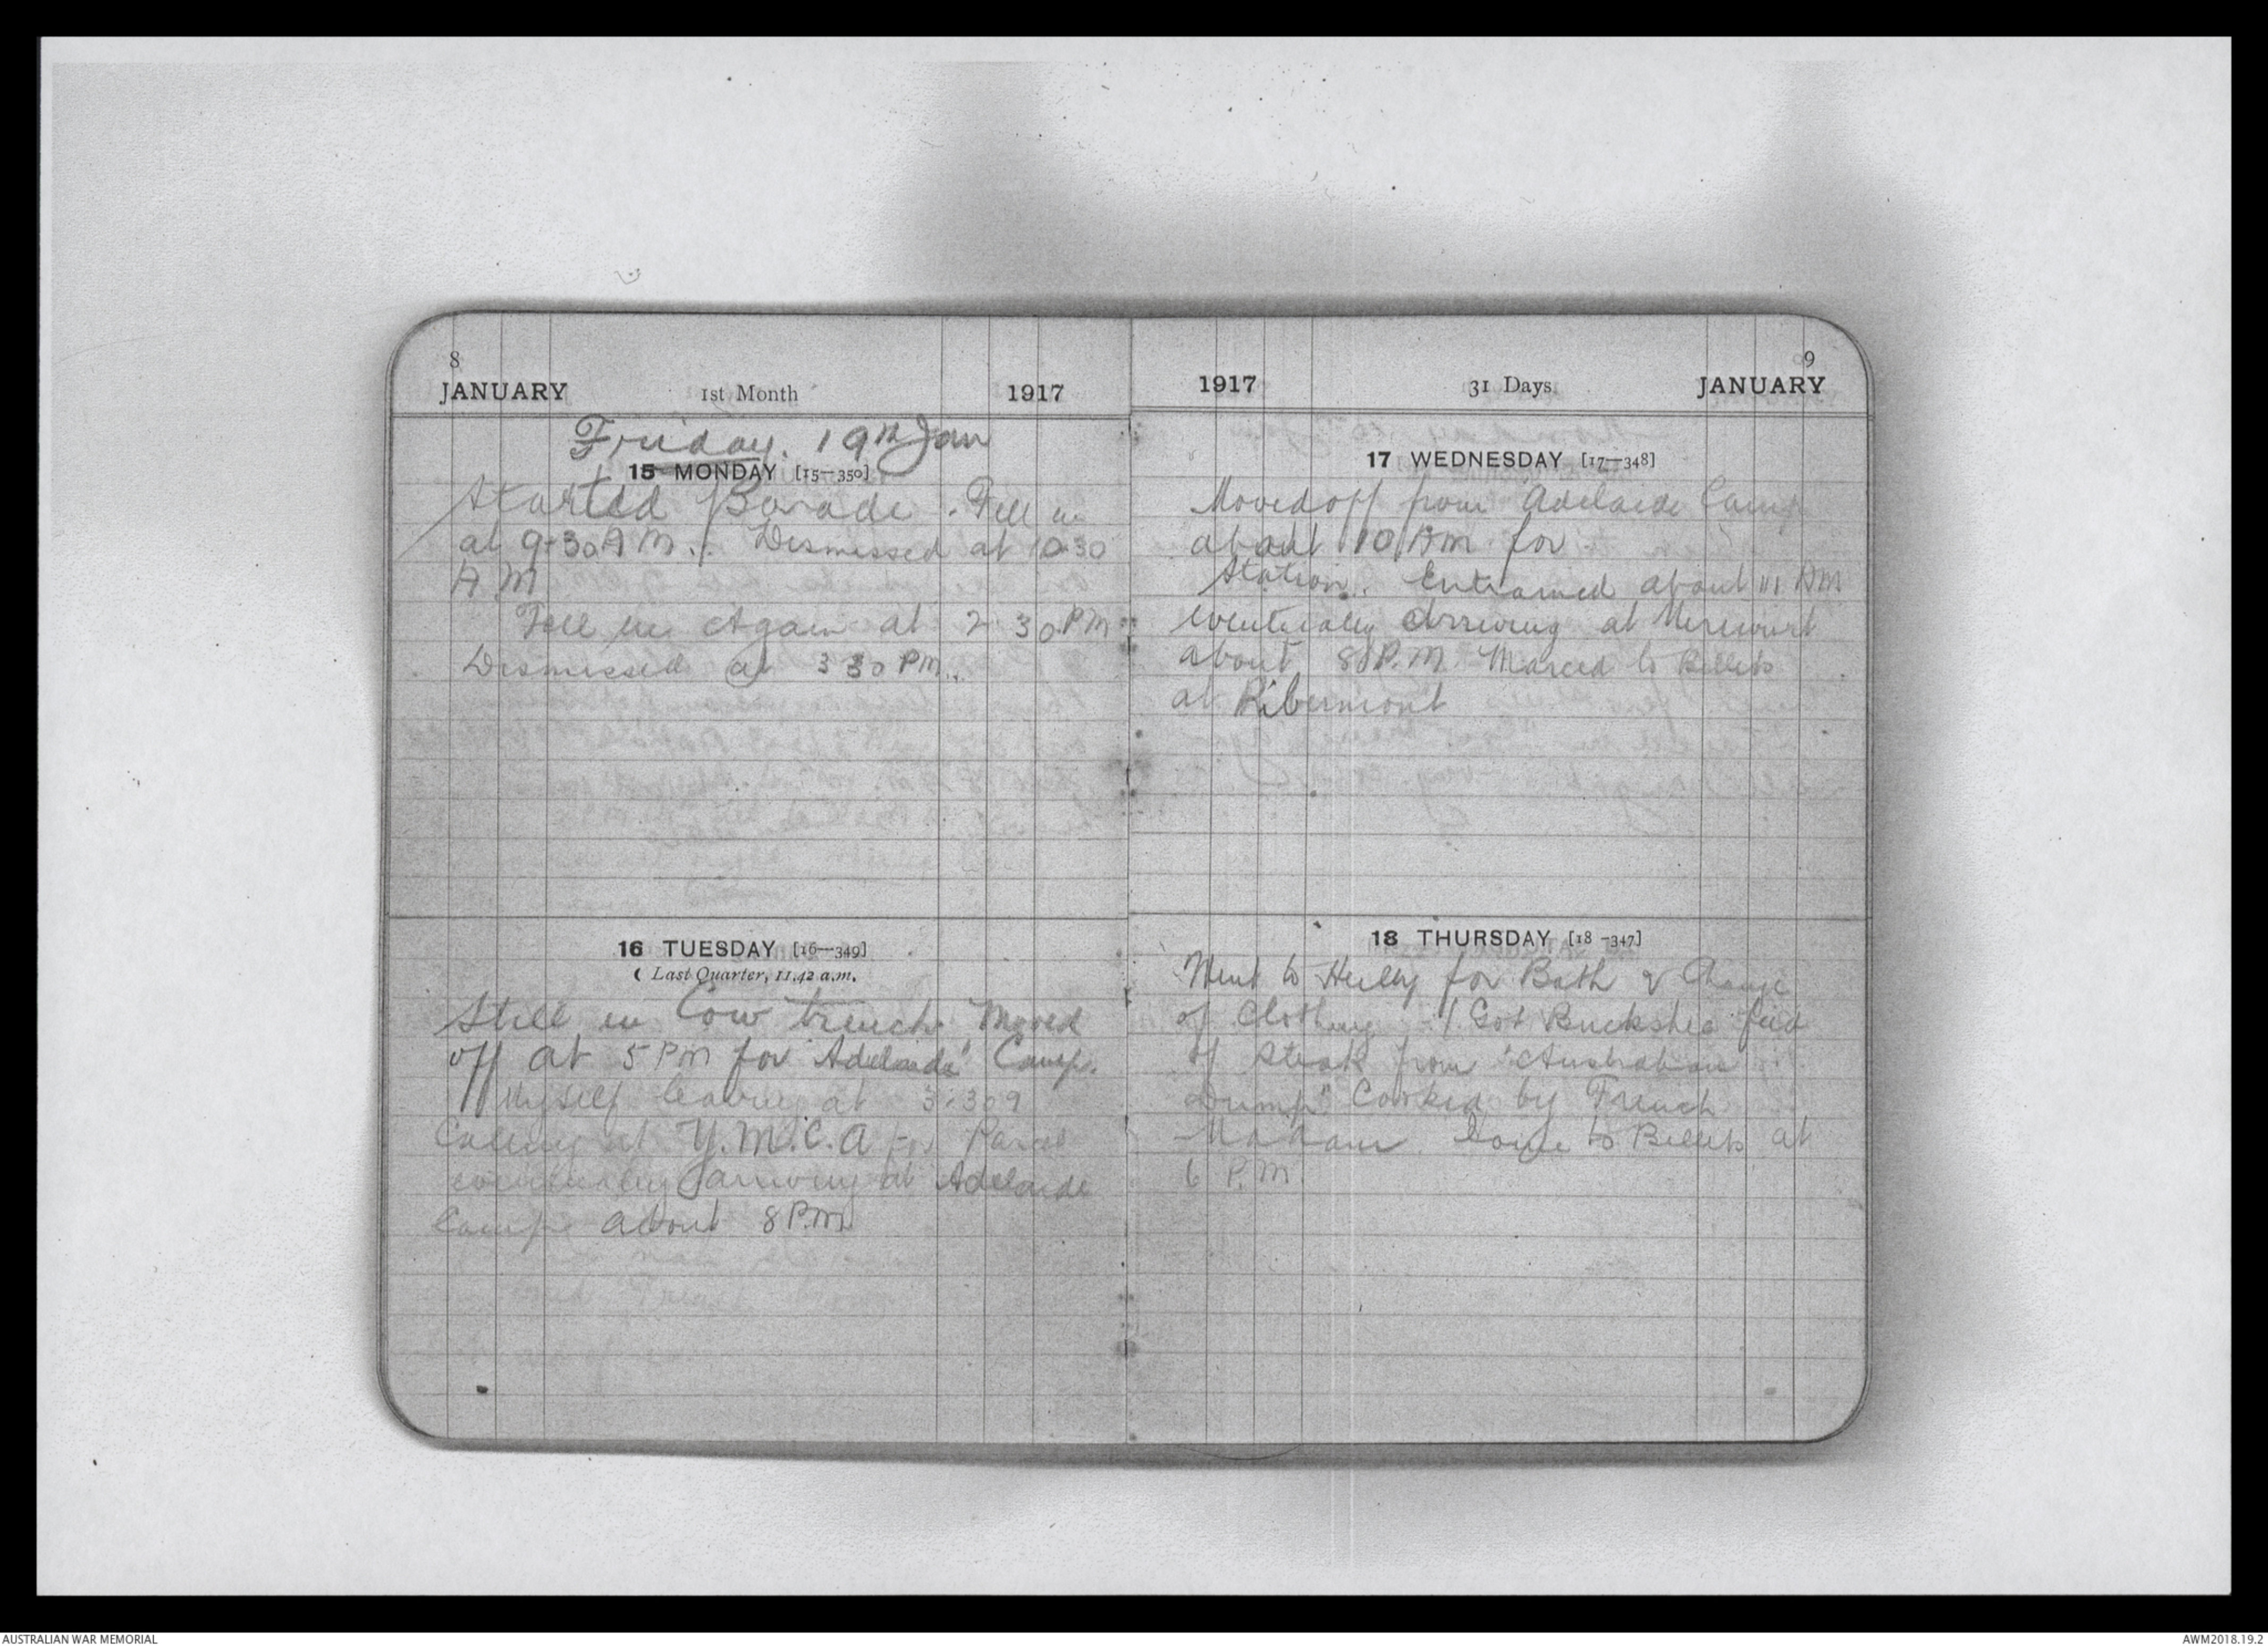 8
JANUARY 1st Month 1917
Friday. 19th Jan
15 MONDAY [15—350]
Started Parade. Fell in
at 9-30 A M. Dismissed at 10 30
A.M
Fell in Again at 2 30 PM
Dismissed at 3 30 PM.
16 TUESDAY [16—349]
( Last Quarter, 11.42 a.m.
Still in Cow trench. Moved
off at 5 PM for "Adelaide" Camp.
Myself leaving at 3.30
Calling at Y.M.C.A for Parcel
eventually arriving at Adelaide
Camp about 8 P.M
9
1917 31 Days JANUARY
17 WEDNESDAY [17—348]
Moved off from Adelaide Camp
about 10 AM for
Station. Entrained about 11 AM
eventually Arriving at Mericourt
about 8 P.M. Marced to Billets
at Ribemont
18 THURSDAY [18—347]
Went to Heilly for Bath & Change
of Clothing. Got Buckshee feed
of Steak from "Australian
Dump" Cooked by French
Madam. to Billets at
6 P.M.
AUSTRALIAN WAR MEMORIAL
AWM2018.19.2